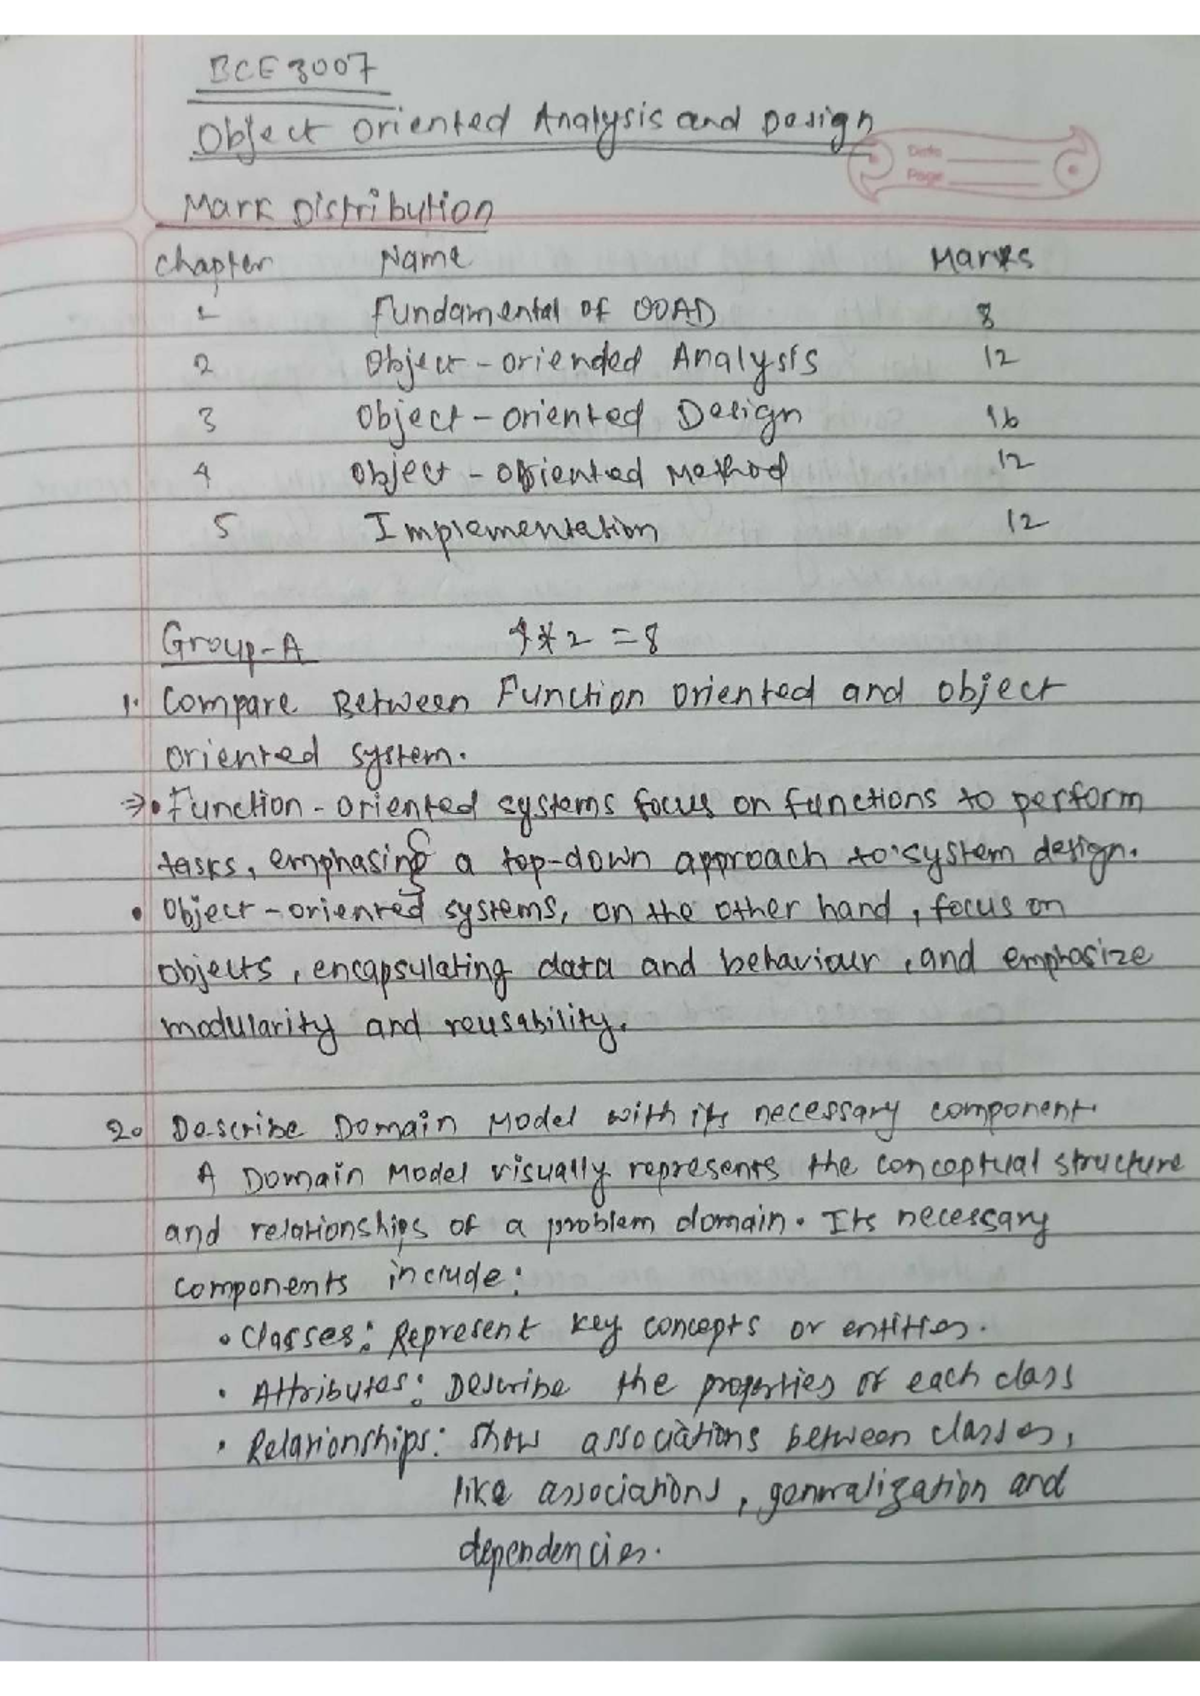 BCE3007
Object Oriented Analysis and Design
Date
Page
Mark Distribution
Chapter Name Marks
1 Fundamental of OOAD 8
2 Object-oriended Analysis 12
3 Object-oriented Design 16
4 Object-oriented Method 12
5 Implementation 12
Group-A 4*2=8
1. Compare Between Function oriented and object
oriented system.
⇒• Function-oriented systems focus on functions to perform
tasks, emphasing a top-down approach to system design.
• Object-oriented systems, on the other hand, focus on
objects, encapsulating data and behaviour, and emphasize
modularity and reusability.
2. Describe Domain Model with its necessary component.
A Domain Model visually represents the conceptual structure
and relationships of a problem domain. Its necessary
components include:
• Classes: Represent key concepts or entities.
• Attributes: Describe the properties of each class
• Relationships: Show associations between classes,
like associations, generalization and
dependencies.